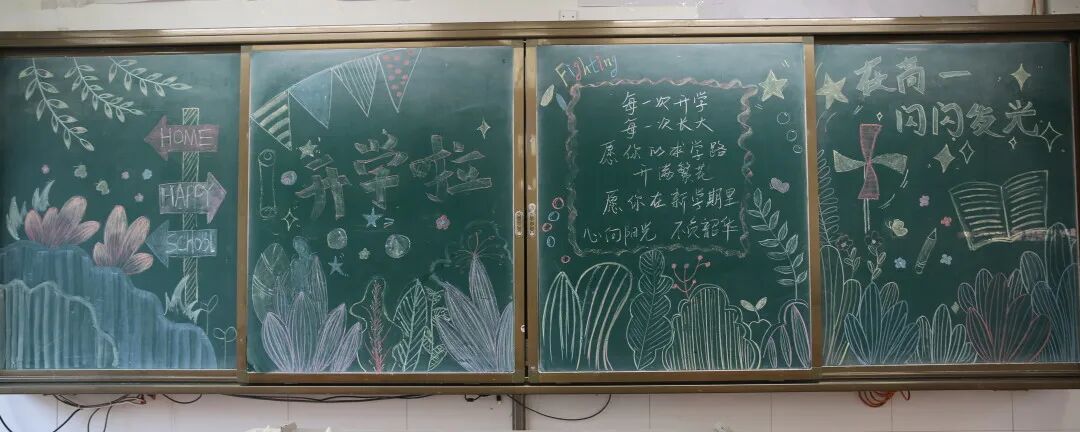 HOME
HAPPY
SCHOOL
开学啦
Fighting
每一次开学
每一次长大
愿你的求学路
开满繁花
愿你在新学期里
心向阳光 不负韶华
在高一
闪闪发光